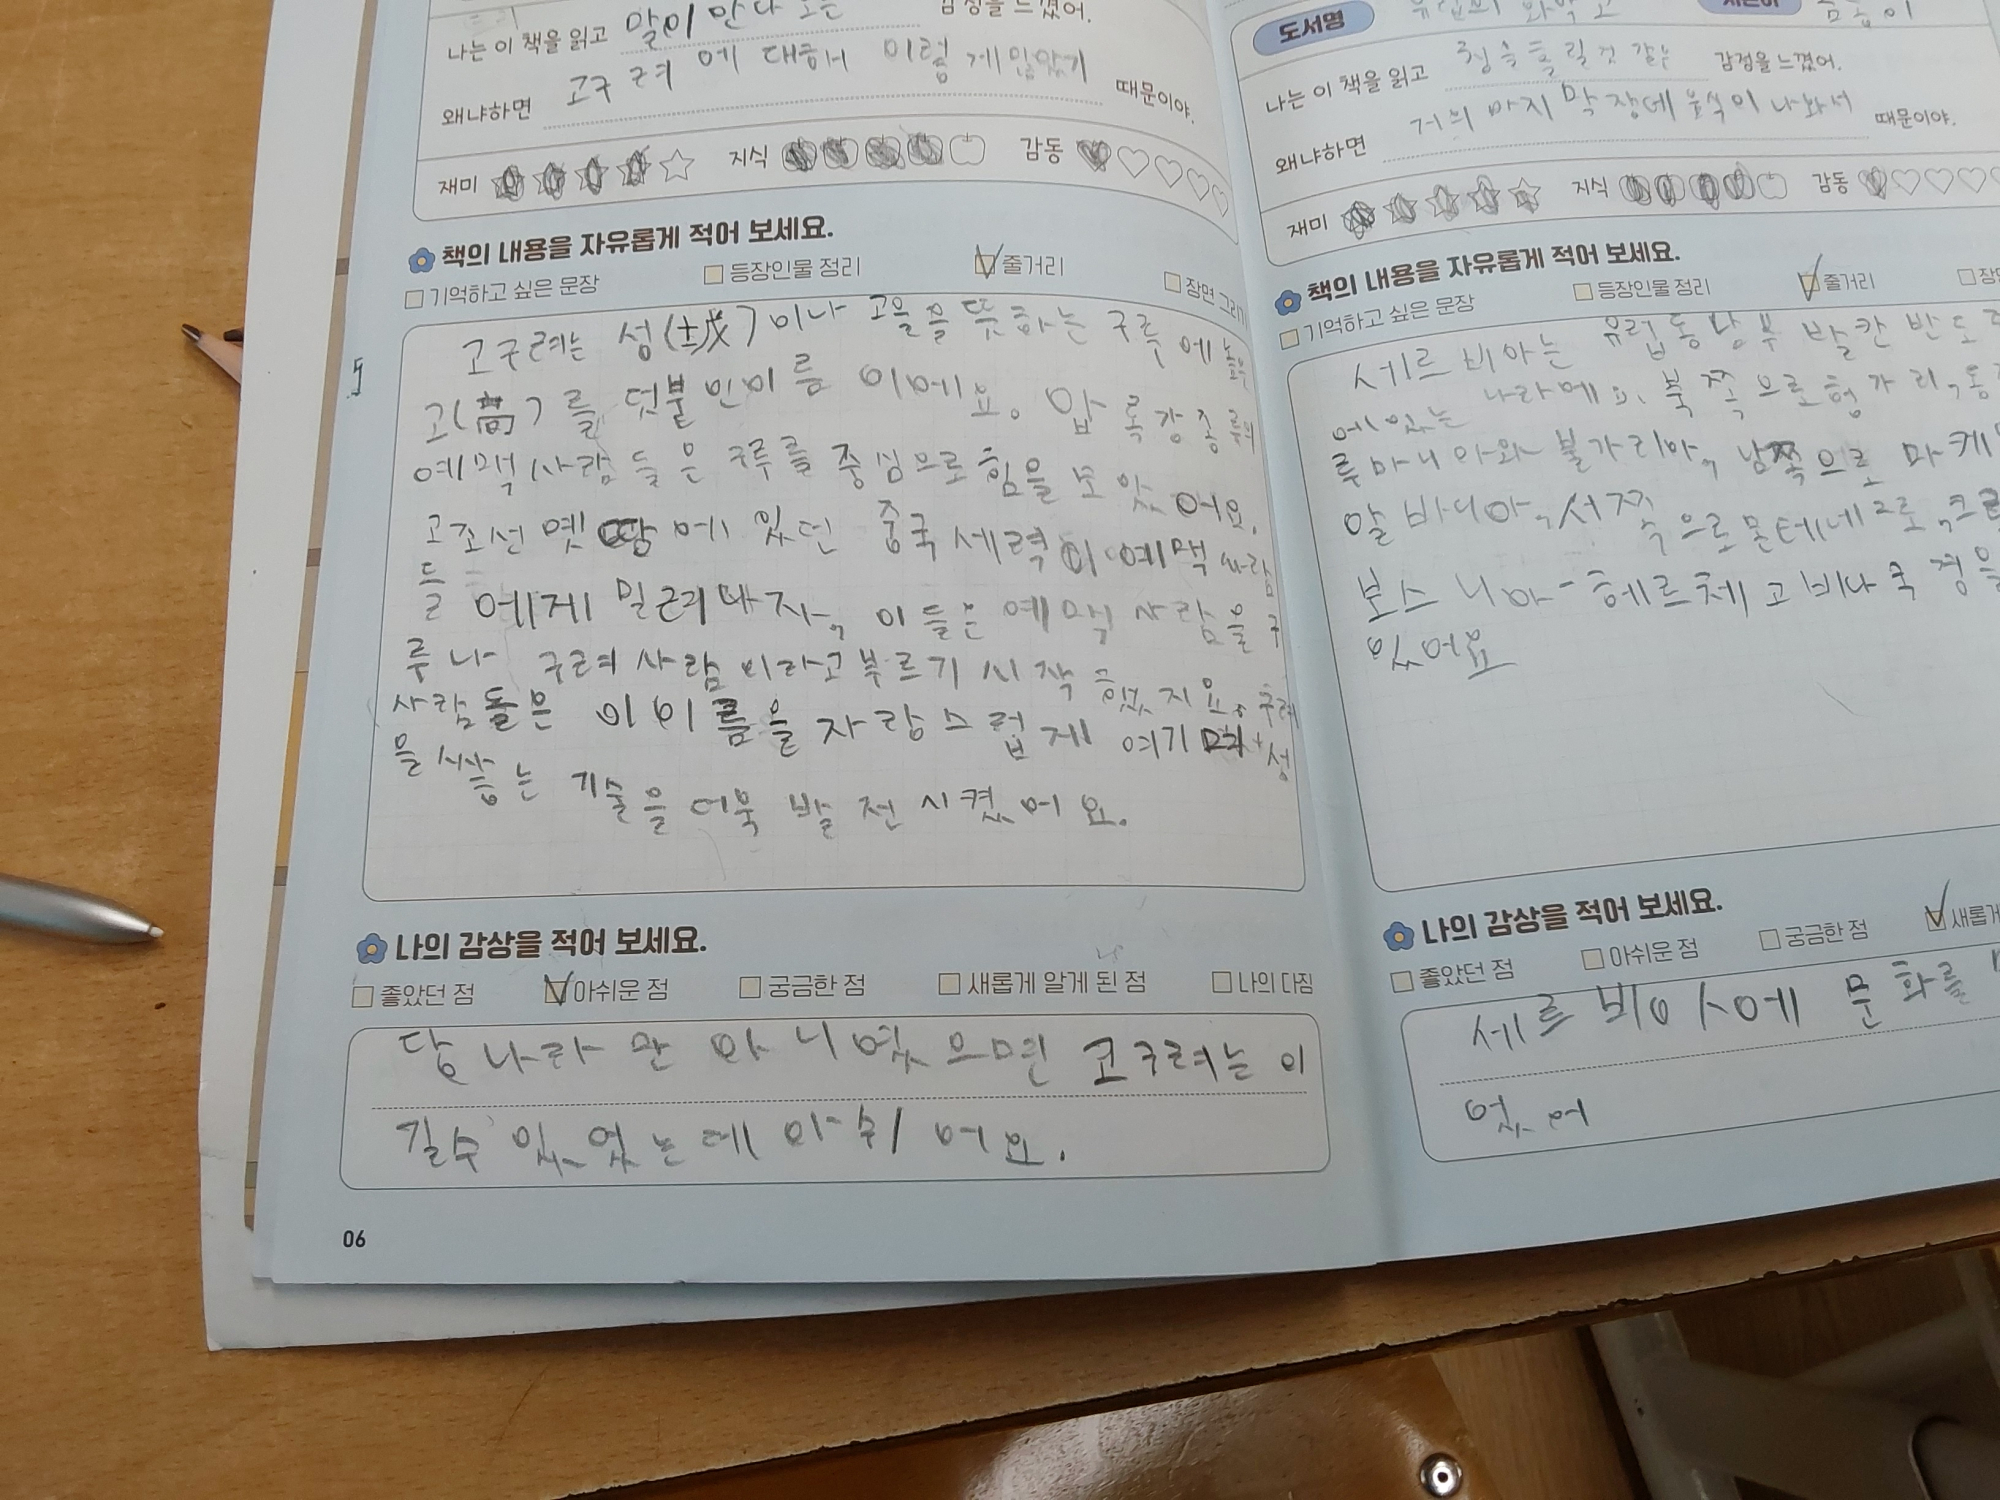 나는 이 책을 읽고 말이 만다고는 감정을 느꼈어.
왜냐하면 고구려에 대해서 이렇게 많았기 때문이야.
재미 지식 감동
책의 내용을 자유롭게 적어 보세요.
기억하고 싶은 문장 등장인물 정리 줄거리 장면 그리기
고구려는 성(城)이나 고을을 뜻하는 구루에
고(高)를 덧붙인 이름 이에요。 압록강 중류의
예맥 사람들은 구루를 중심으로 힘을 모았어요.
고조선 옛 땅에 있던 중국 세력이 예맥 사람
들에게 밀려나자, 이들은 예맥 사람을 구
루나 구려 사람이라고 부르기 시작했지요。 구려
사람들은 이 이름을 자랑스럽게 여기며 성
을 쌓는 기술을 더욱 발전시켰어요.
나의 감상을 적어 보세요.
좋았던 점 아쉬운 점 궁금한 점 새롭게 알게 된 점 나의 다짐
당나라만 아니였으면 고구려는 이
길수 있었는데 아쉬어요.
06
도서명
나는 이 책을 읽고 침을 흘릴것 같은 감정을 느꼈어.
왜냐하면 거의 마지막 장에 음식이 나와서 때문이야.
재미 지식 감동
책의 내용을 자유롭게 적어 보세요.
기억하고 싶은 문장 등장인물 정리 줄거리
세르비아는 유럽 동남부 발칸 반도
에 있는 나라예요. 북쪽으로 헝가리, 동
루마니아와 불가리아, 남쪽으로 마케
알바니아, 서쪽으로 몬테네그로, 크로
보스니아-헤르체고비나 국경을
있어요
나의 감상을 적어 보세요.
좋았던 점 아쉬운 점 궁금한 점 새롭게
세르비아에 문화를
었어